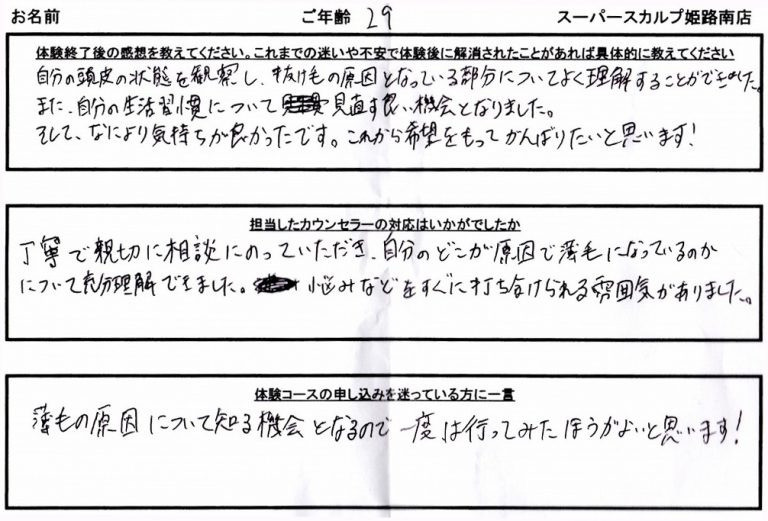 お名前 ご年齢 29 スーパースカルプ姫路南店
体験終了後の感想を教えてください。これまでの迷いや不安で体験後に解消されたことがあれば具体的に教えてください
自分の頭皮の状態を観察し、抜け毛の原因となっている部分についてよく理解することができました。
また、自分の生活習慣について見直す良い機会となりました。
そして、なにより気持ちが良かったです。これから希望をもってがんばりたいと思います!
担当したカウンセラーの対応はいかがでしたか
丁寧で親切に相談にのっていただき、自分のどこが原因で薄毛になっているのか
について充分理解できました。悩みなどをすぐに打ち明けられる雰囲気がありました。
体験コースの申し込みを迷っている方に一言
薄毛の原因について知る機会となるので一度は行ってみたほうがよいと思います!